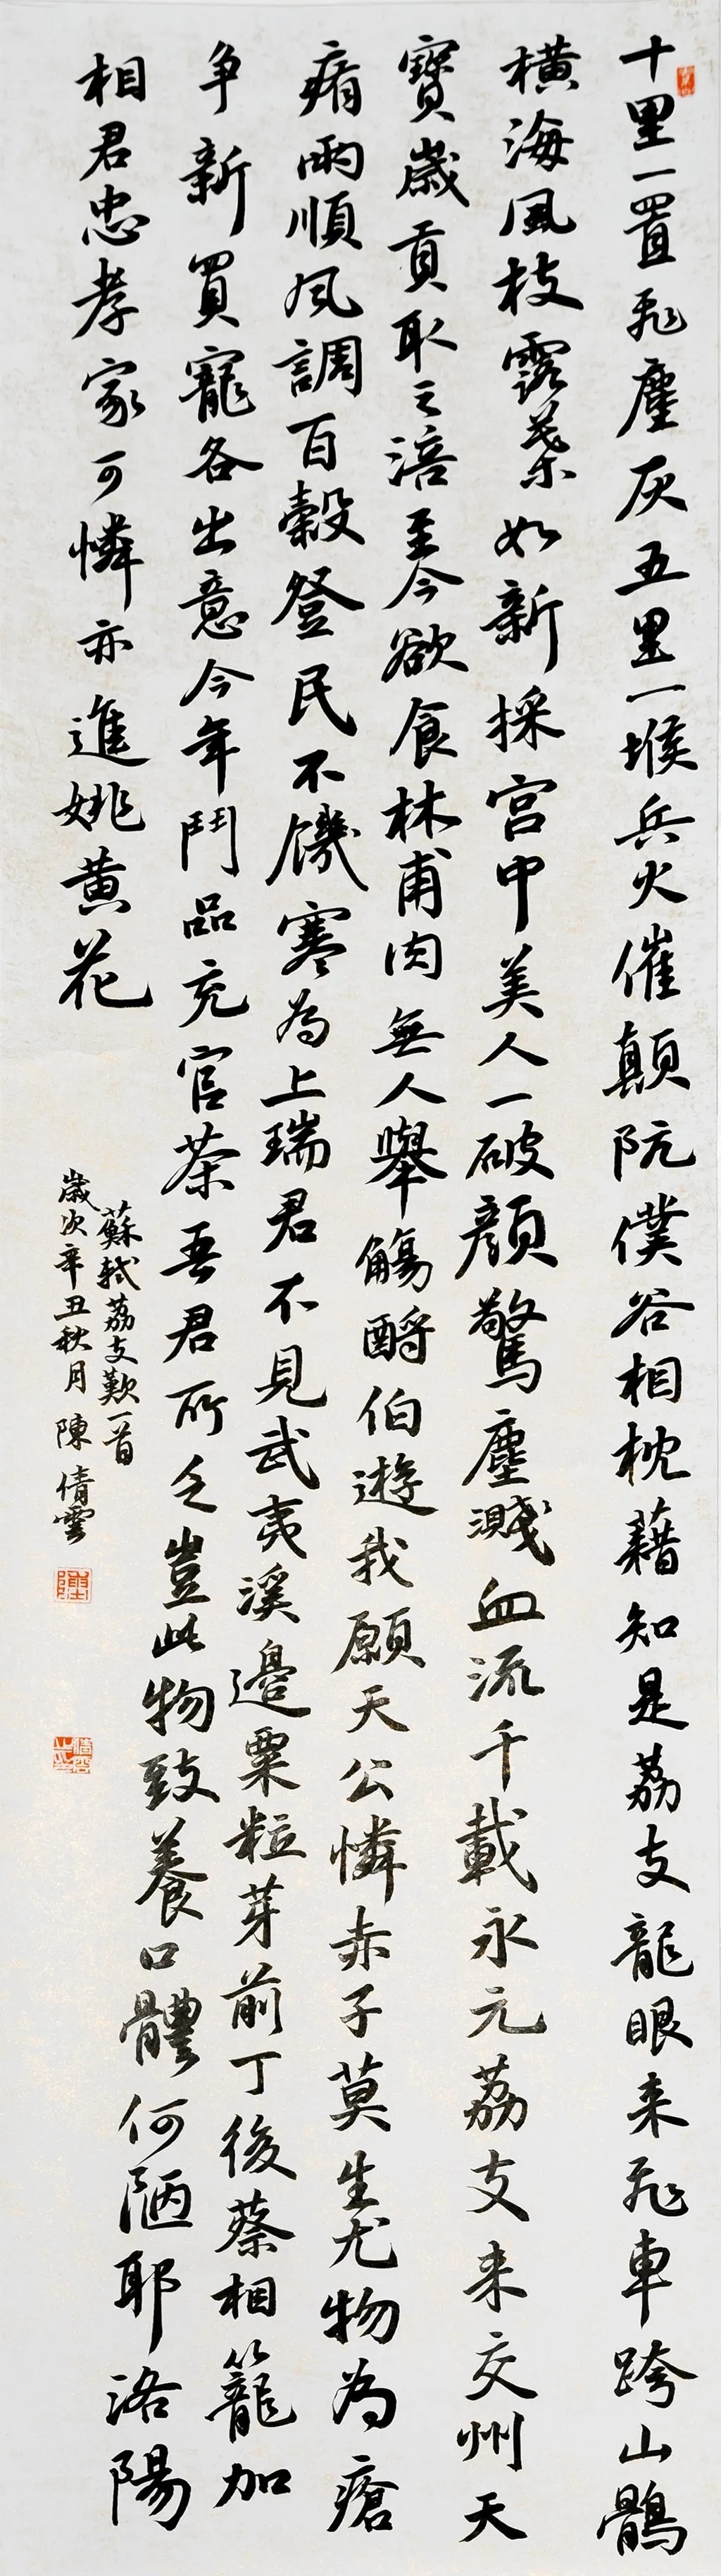 十里一置飛塵灰五里一堠兵火催顛阬僕谷相枕藉知是荔支龍眼来飛車跨山鶻
橫海風枝露葉如新採宫中美人一破顔驚塵濺血流千載永元荔支来交州天
寶歲貢取之涪至今欲食林甫肉無人舉觴酹伯遊我願天公憐赤子莫生尤物為瘡
痏雨順風調百穀登民不饑寒為上瑞君不見武夷溪邊粟粒芽前丁後蔡相籠加
争新買寵各出意今年鬥品充官茶吾君所乏豈此物致養口體何陋耶洛陽
相君忠孝家可憐亦進姚黄花
蘇軾荔支歎一首
歲次辛丑秋月陳倩雲